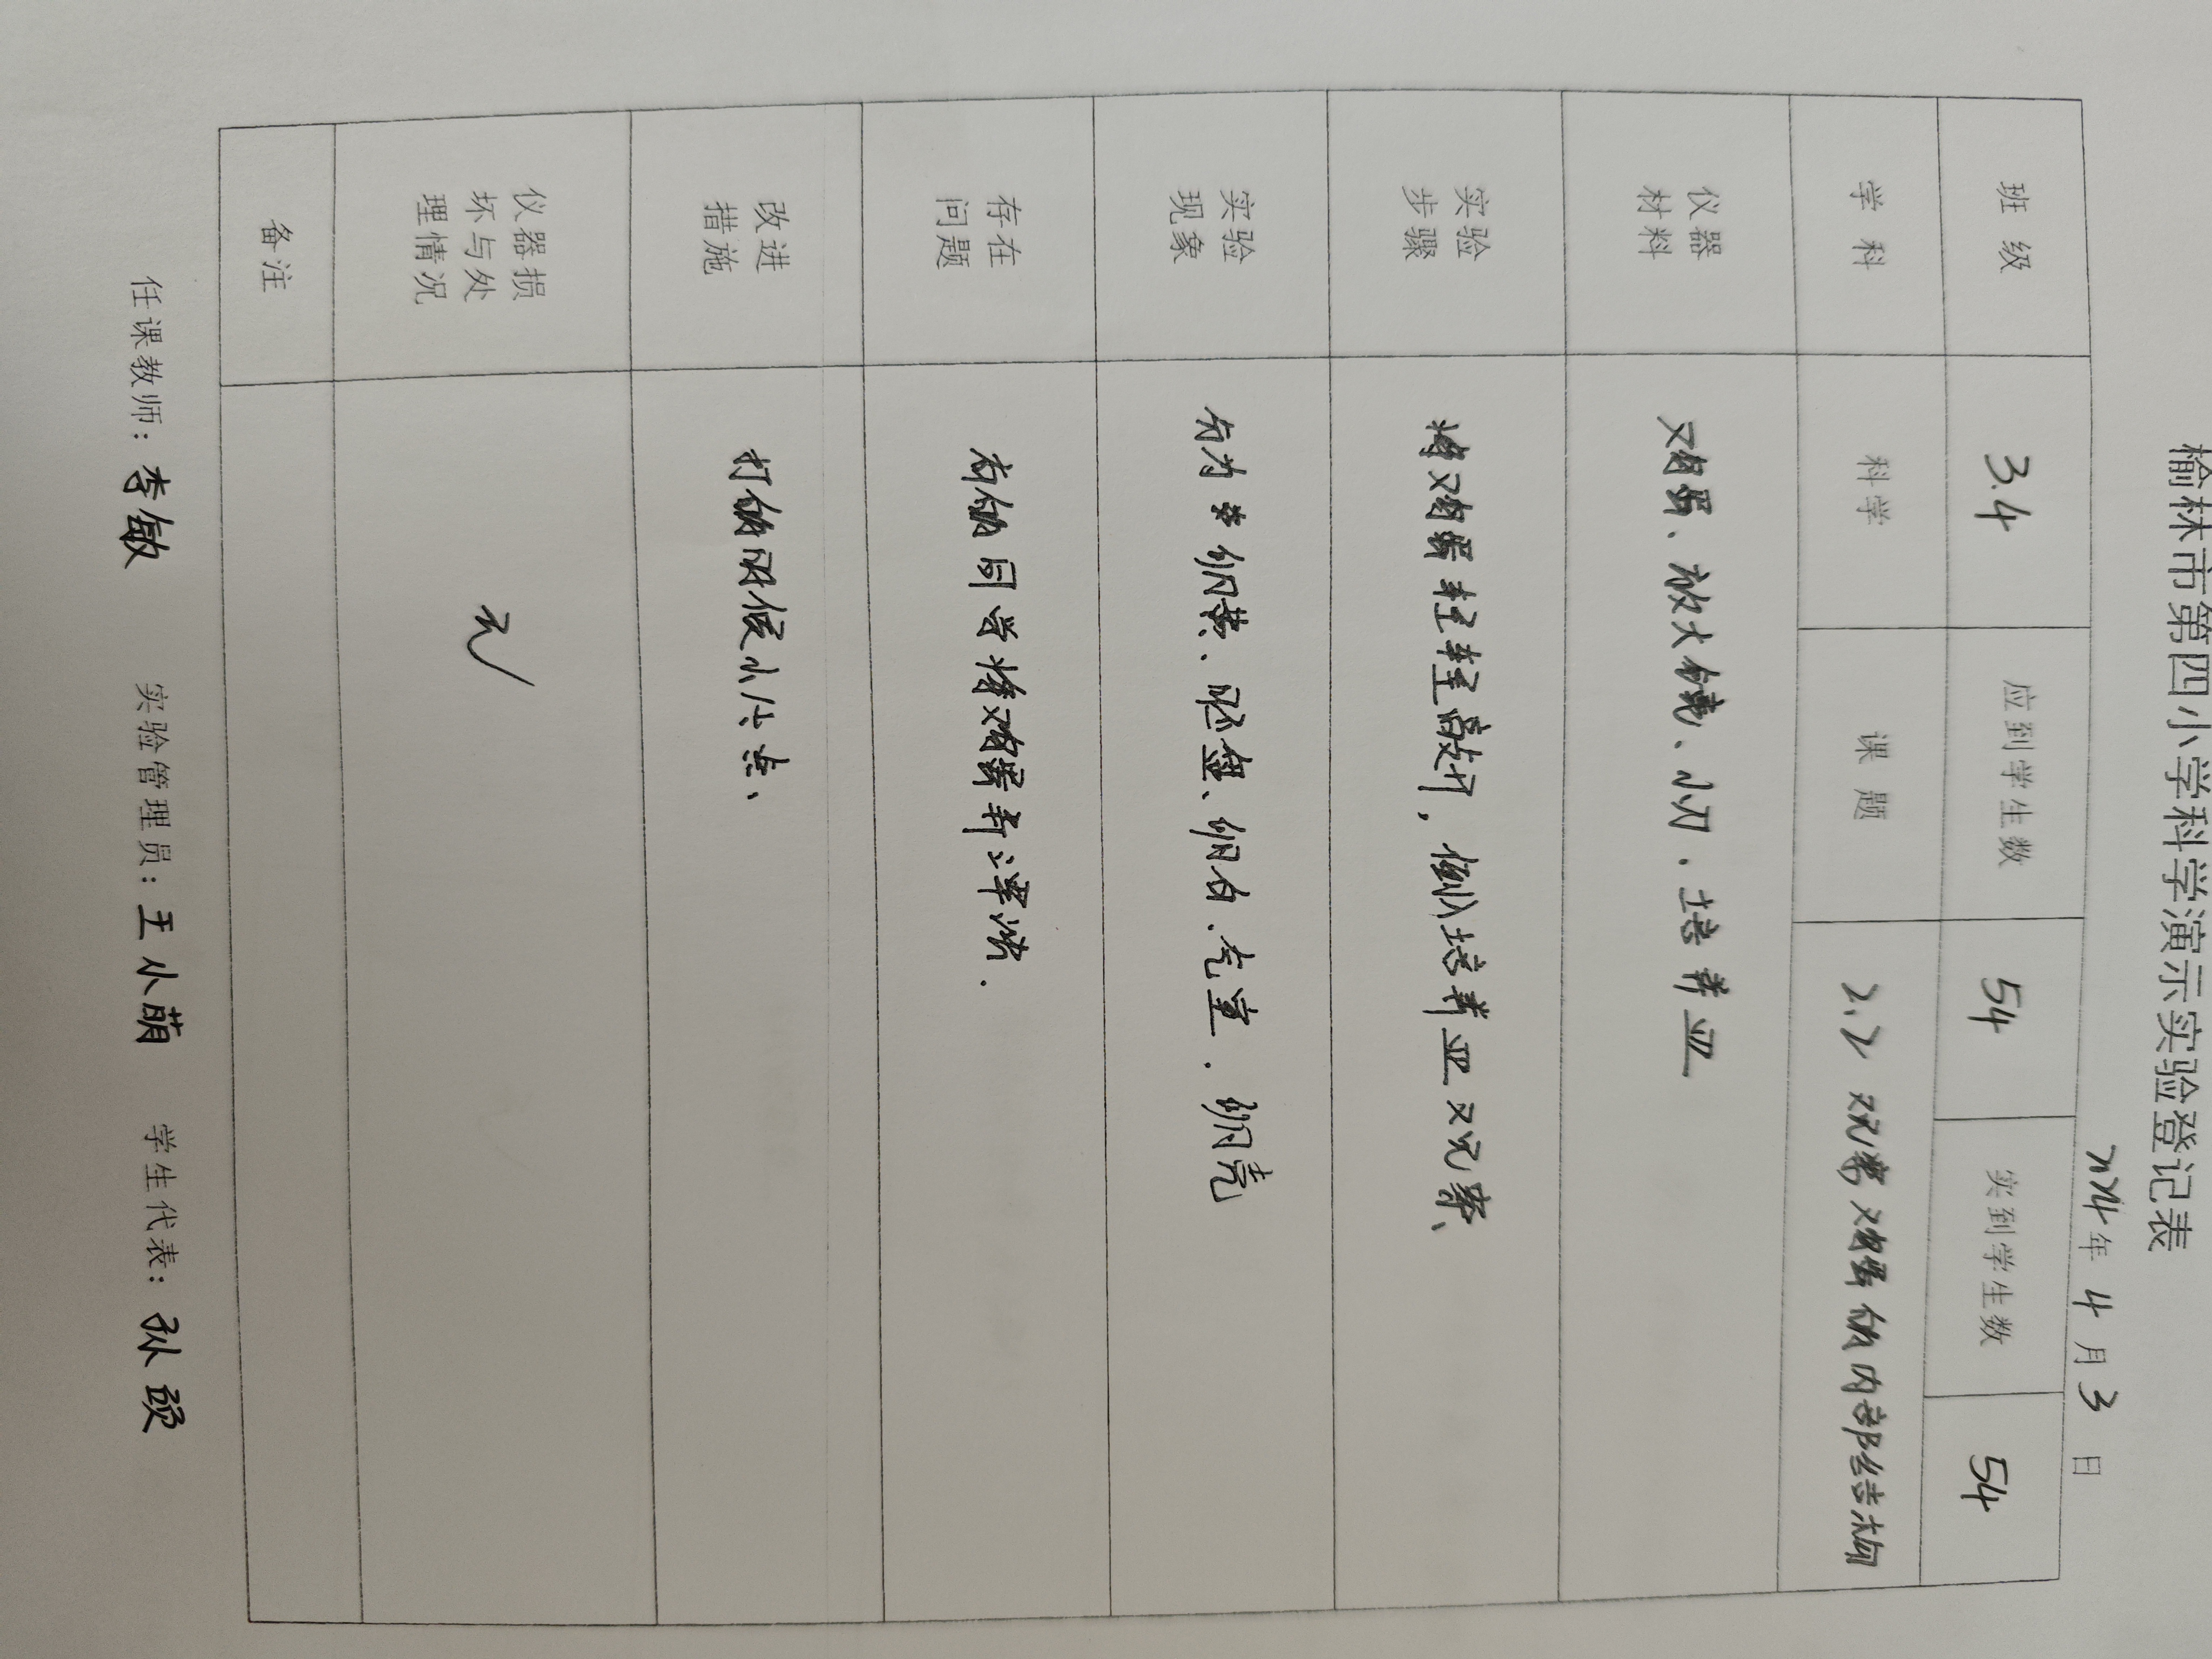 榆林市第四小学科学演示实验登记表
2024年 4 月 3 日
班 级 3.4 应到学生数 54 实到学生数 54
学 科 科学 课 题 2.2 观察鸡蛋的内部结构
仪器
材料
鸡蛋、放大镜、小刀、培养皿
实验
步骤
将鸡蛋轻轻敲打，倒入培养皿观察、
实验
现象
分为 卵黄、胚盘、卵白、气室、卵壳
存在
问题
有的同学将鸡蛋弄洒.
改进
措施
打的时候小心点、
仪器损
坏与处
理情况
无
备 注
任课教师：李敏 实验管理员：王小萌 学生代表：孙硕